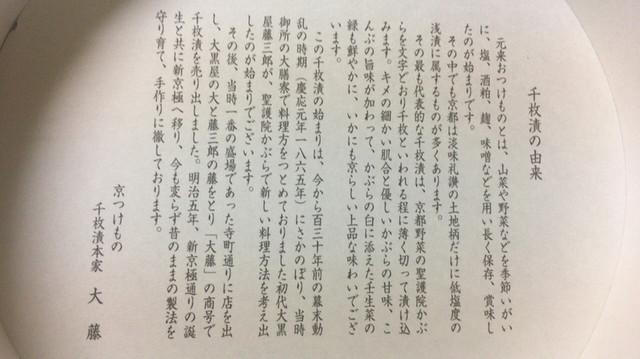 千枚漬の由来
元来おつけものとは、山菜や野菜などを季節いがい
に、塩、酒粕、麹、味噌などを用い長く保存、賞味し
たのが始まりです。
その中でも京都は淡味礼讃の土地柄だけに低塩度の
浅漬に属するものが多くあります。
その最も代表的な千枚漬は、京都野菜の聖護院かぶ
らを文字どおり千枚といわれる程に薄く切って漬け込
みます。キメの細かい肌合と優しいかぶらの甘味、こ
んぶの旨味が加わって、かぶらの白に添えた壬生菜の
緑も鮮やかに、いかにも京らしい上品な味わいでござ
います。
この千枚漬の始まりは、今から百三十年前の幕末動
乱の時期（慶応元年一八六五年）にさかのぼり、当時
御所の大膳寮で料理方をつとめておりました初代大黒
屋藤三郎が、聖護院かぶらで新しい料理方法を考え出
したのが始まりでございます。
その後、当時一番の盛場であった寺町通りに店を出
し、大黒屋の大と藤三郎の藤をとり「大藤」の商号で
千枚漬を売り出しました。明治五年、新京極通りの誕
生と共に新京極へ移り、今も変らず昔のままの製法を
守り育て、手作りに徹しております。
京つけもの
千枚漬本家 大藤